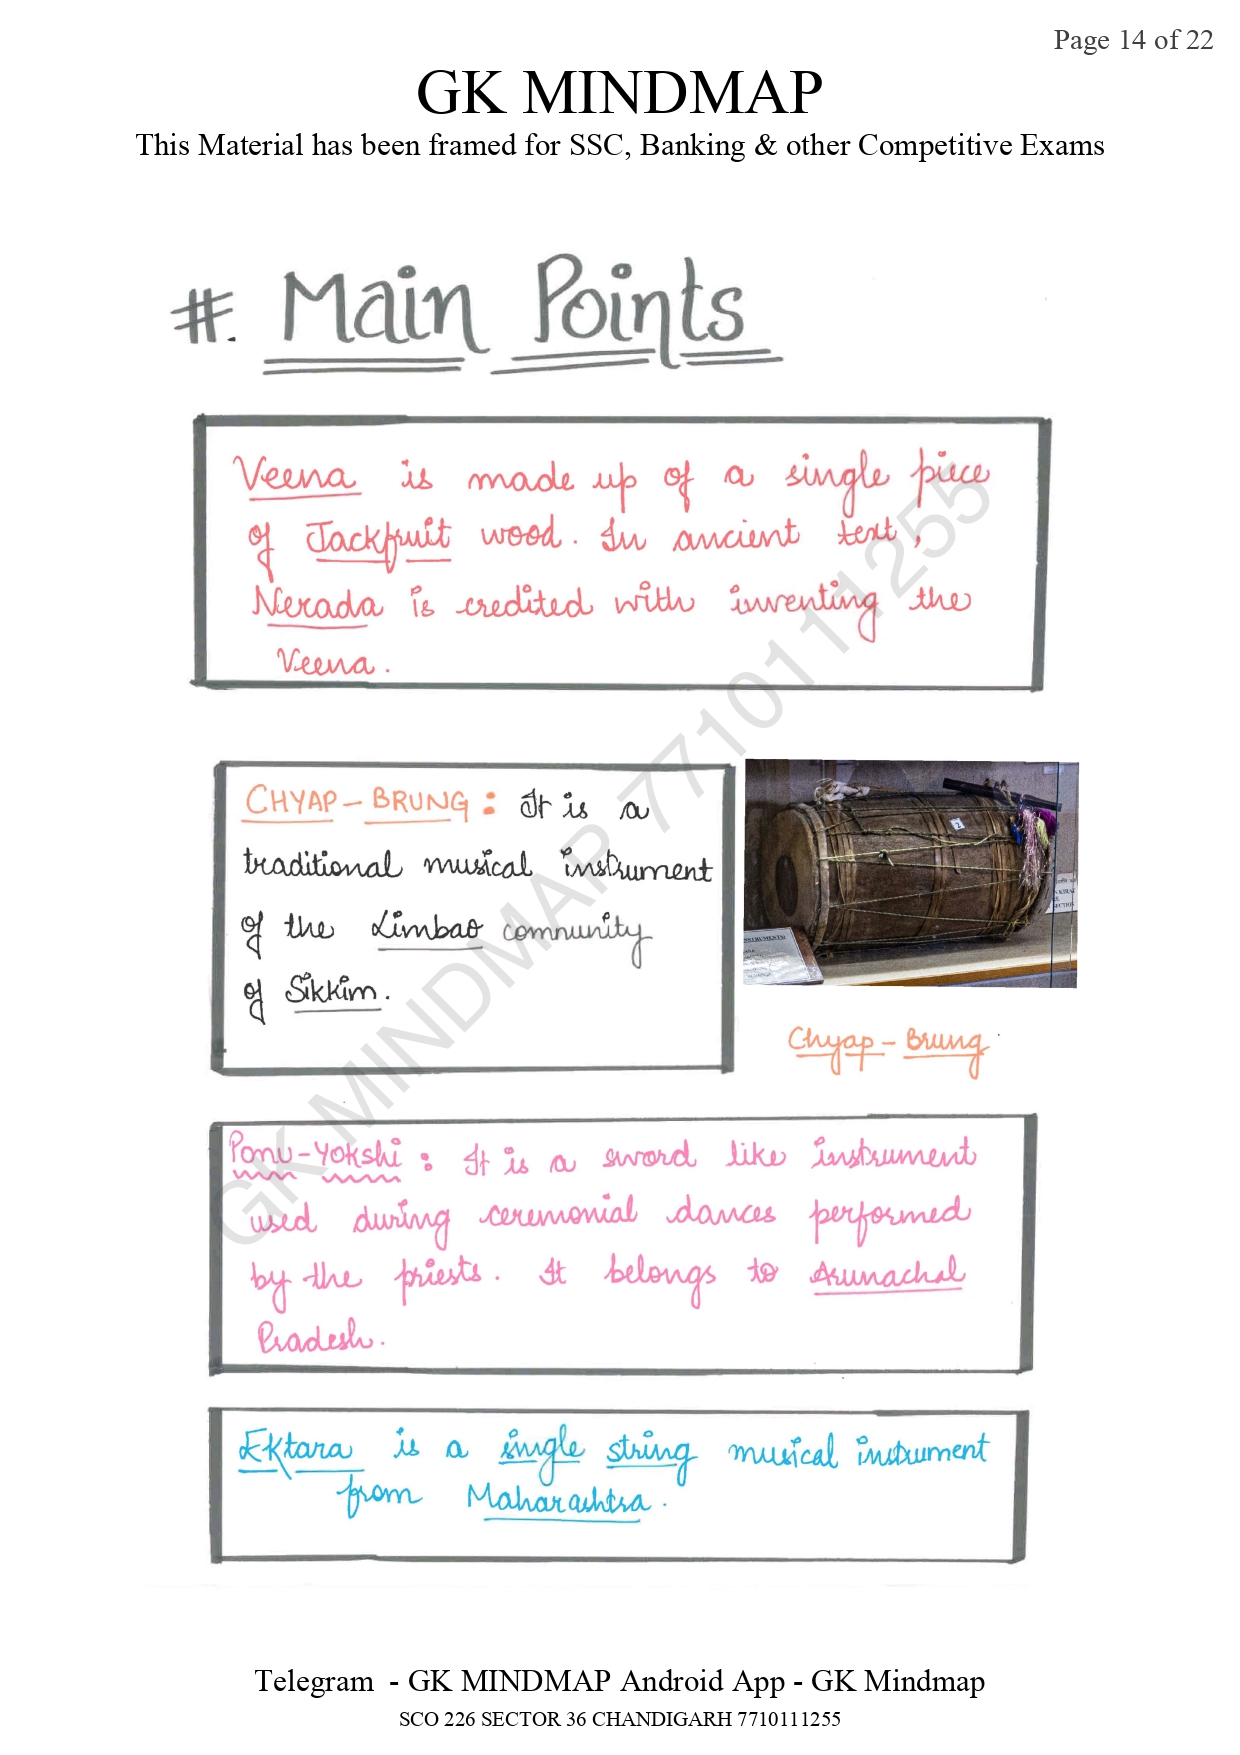 Page 14 of 22
GK MINDMAP
This Material has been framed for SSC, Banking & other Competitive Exams
#. Main Points
Veena is made up of a single piece
of Jackfruit wood. In ancient text,
Nerada is credited with inventing the
Veena.
CHYAP-BRUNG: It is a
traditional musical instrument
of the Limbao community
of Sikkim.
2
Chyap-Brung
Ponu-Yokshi: It is a sword like instrument
used during ceremonial dances performed
by the priests. It belongs to Arunachal
Pradesh.
Ektara is a single string musical instrument
from Maharashtra.
GK MINDMAP 7710111255
Telegram - GK MINDMAP Android App - GK Mindmap
SCO 226 SECTOR 36 CHANDIGARH 7710111255